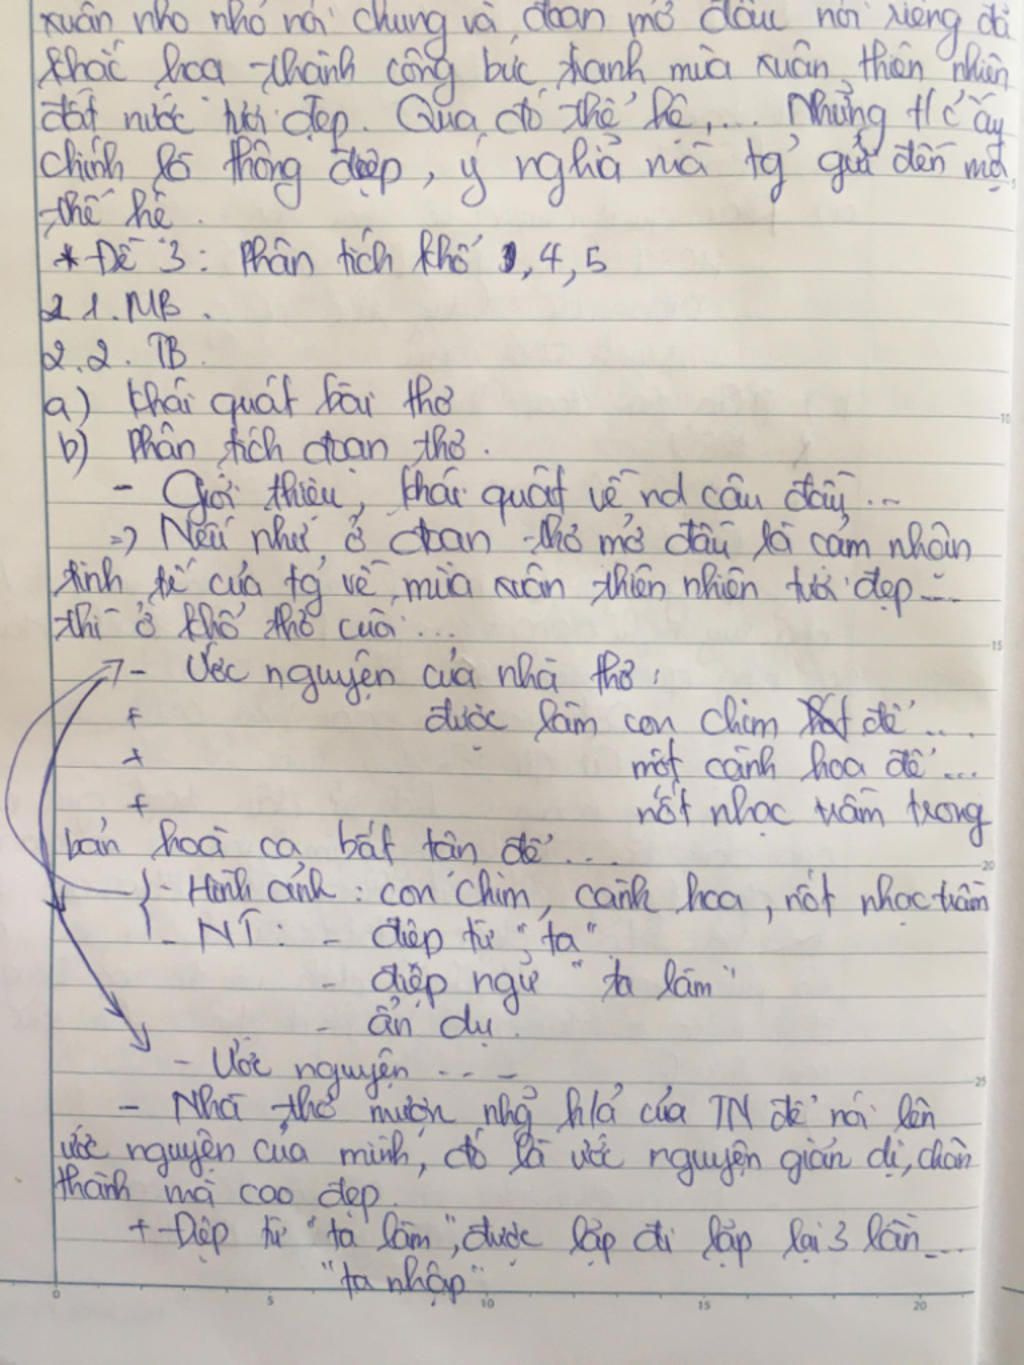 xuân nho nhỏ nói chung và đoạn mở đầu nói riêng đã
khắc hoạ thành công bức tranh mùa xuân thiên nhiên
đất nước tươi đẹp. Qua đó thể hệ,... Những t/c ấy
chính là thông điệp, ý nghĩa mà tg' gửi đến mọi
thế hệ.
* Đề 3: Phân tích khổ 1, 4, 5
2.1. MB.
2.2. TB.
a) Khái quát bài thơ
b) Phân tích đoạn thơ.
- Giới thiệu, khái quát về nd câu đầu...
=> Nếu như ở đoạn thơ mở đầu là cảm nhận
tinh tế của tg' về mùa xuân thiên nhiên tươi đẹp...
thì ở khổ thơ cuối...
- Ước nguyện của nhà thơ:
+ được làm con chim hót để...
+ một cành hoa để...
+ nốt nhạc trầm trong
bản hoà ca bất tận để...
- Hình ảnh: con chim, cành hoa, nốt nhạc trầm
- NT: - điệp từ "ta"
- điệp ngữ "ta làm"
- ẩn dụ.
- Ước nguyện...
- Nhà thơ mượn h/ả của TN để nói lên
ước nguyện của mình, đó là ước nguyện giản dị, chân
thành mà cao đẹp.
+ Điệp từ "ta làm", được lặp đi lặp lại 3 lần...
"ta nhập"
0 5 10 15 20
10
15
20
25